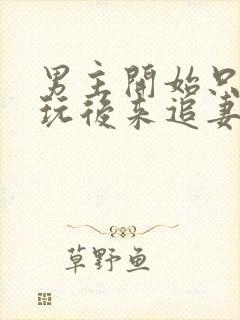 男主開始只
玩後來追妻
草野鱼